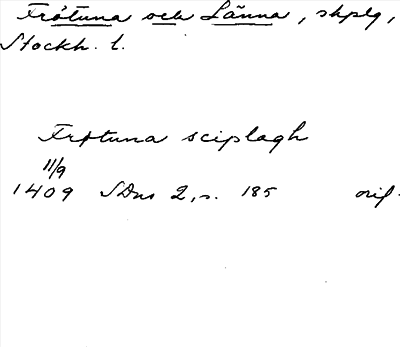 Frötuna och Länna, skplg,
Stockh. l.
Frøtuna sciplagh
11/9
1409 SDns 2, s. 185 orig.